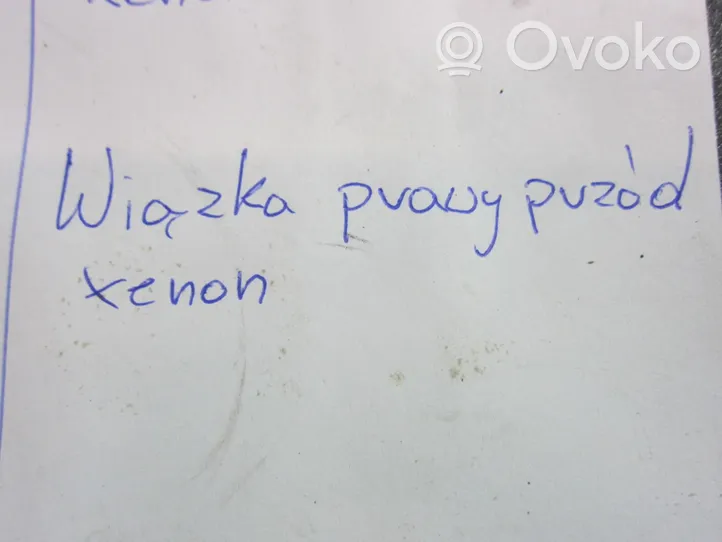 Ovoko
Wiązka prawy przód
xenon